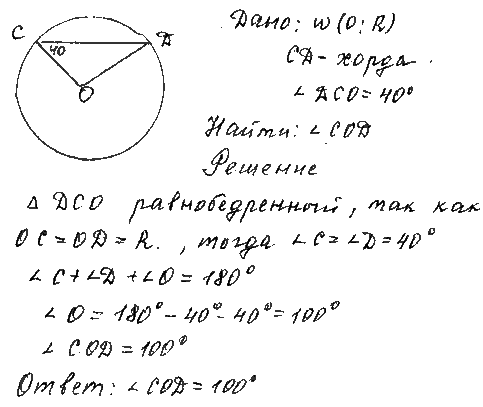 C
D
40
O
Дано: w(O; R)
CD - хорда.
∠DCO = 40°
Найти: ∠COD
Решение
Δ DCO равнобедренный, так как
OC = OD = R., тогда ∠C = ∠D = 40°
∠C + ∠D + ∠O = 180°
∠O = 180° - 40° - 40° = 100°
∠COD = 100°
Ответ: ∠COD = 100°